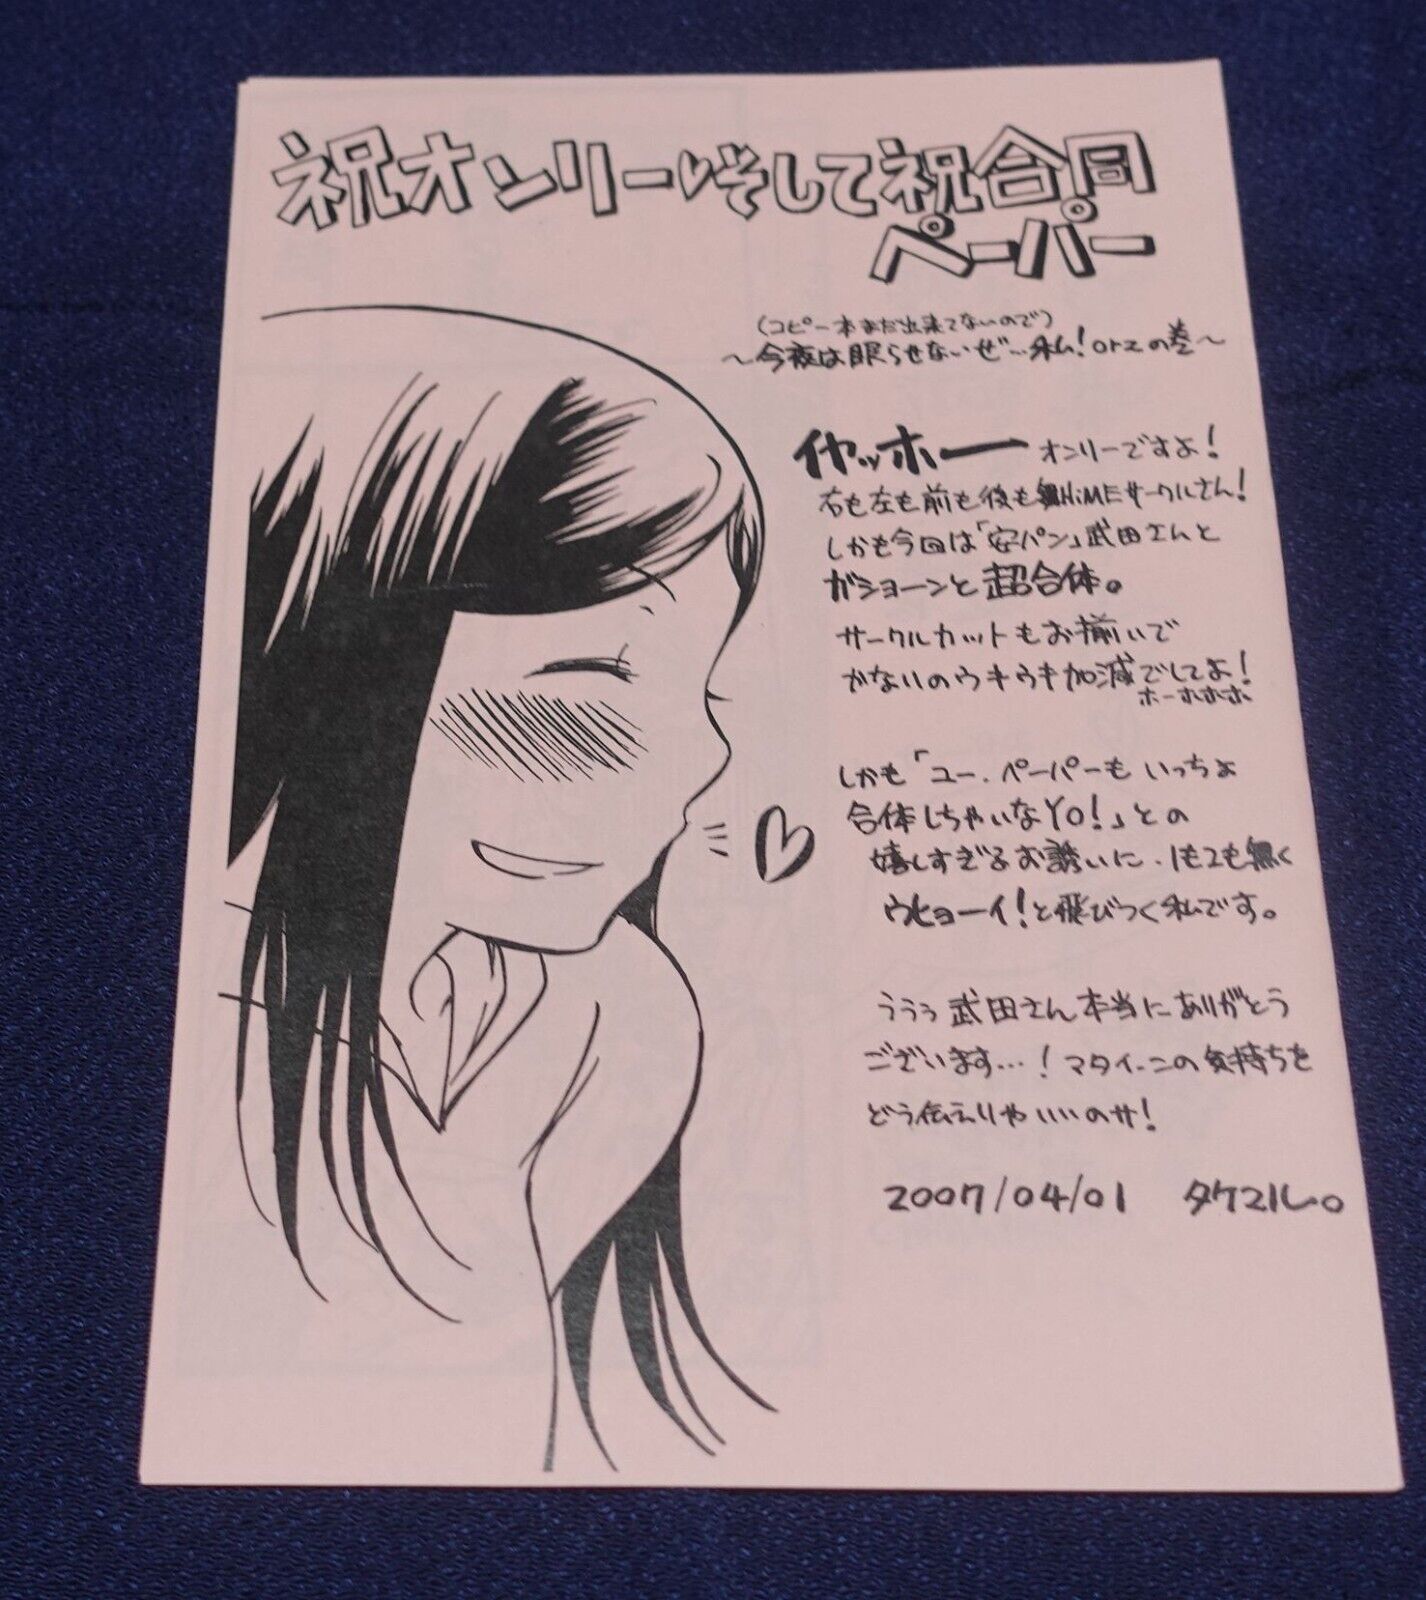 祝オンリー!そして祝合同
ペーパー
(コピー本まだ出来てないので)
～今夜は眠らせないぜ…私!orzの巻～
イヤッホー オンリーですよ!
右も左も前も後も舞HiMEサークルさん!
しかも今回は「安パン」武田さんと
ガショーンと超合体。
サークルカットもお揃いで
かないのウキウキ加減でしてよ!
ホーホホホホ
しかも「ユー、ペーパーもいっちょ
合体しちゃいなYO!」との
嬉しすぎるお誘いに、1も2も無く
ウヒョーイ!と飛びつく私です。
ううぅ武田さん本当にありがとう
ございます…!マタイ-ニの気持ちを
どう伝えりゃいいのサ!
2007/04/01 タケマル。